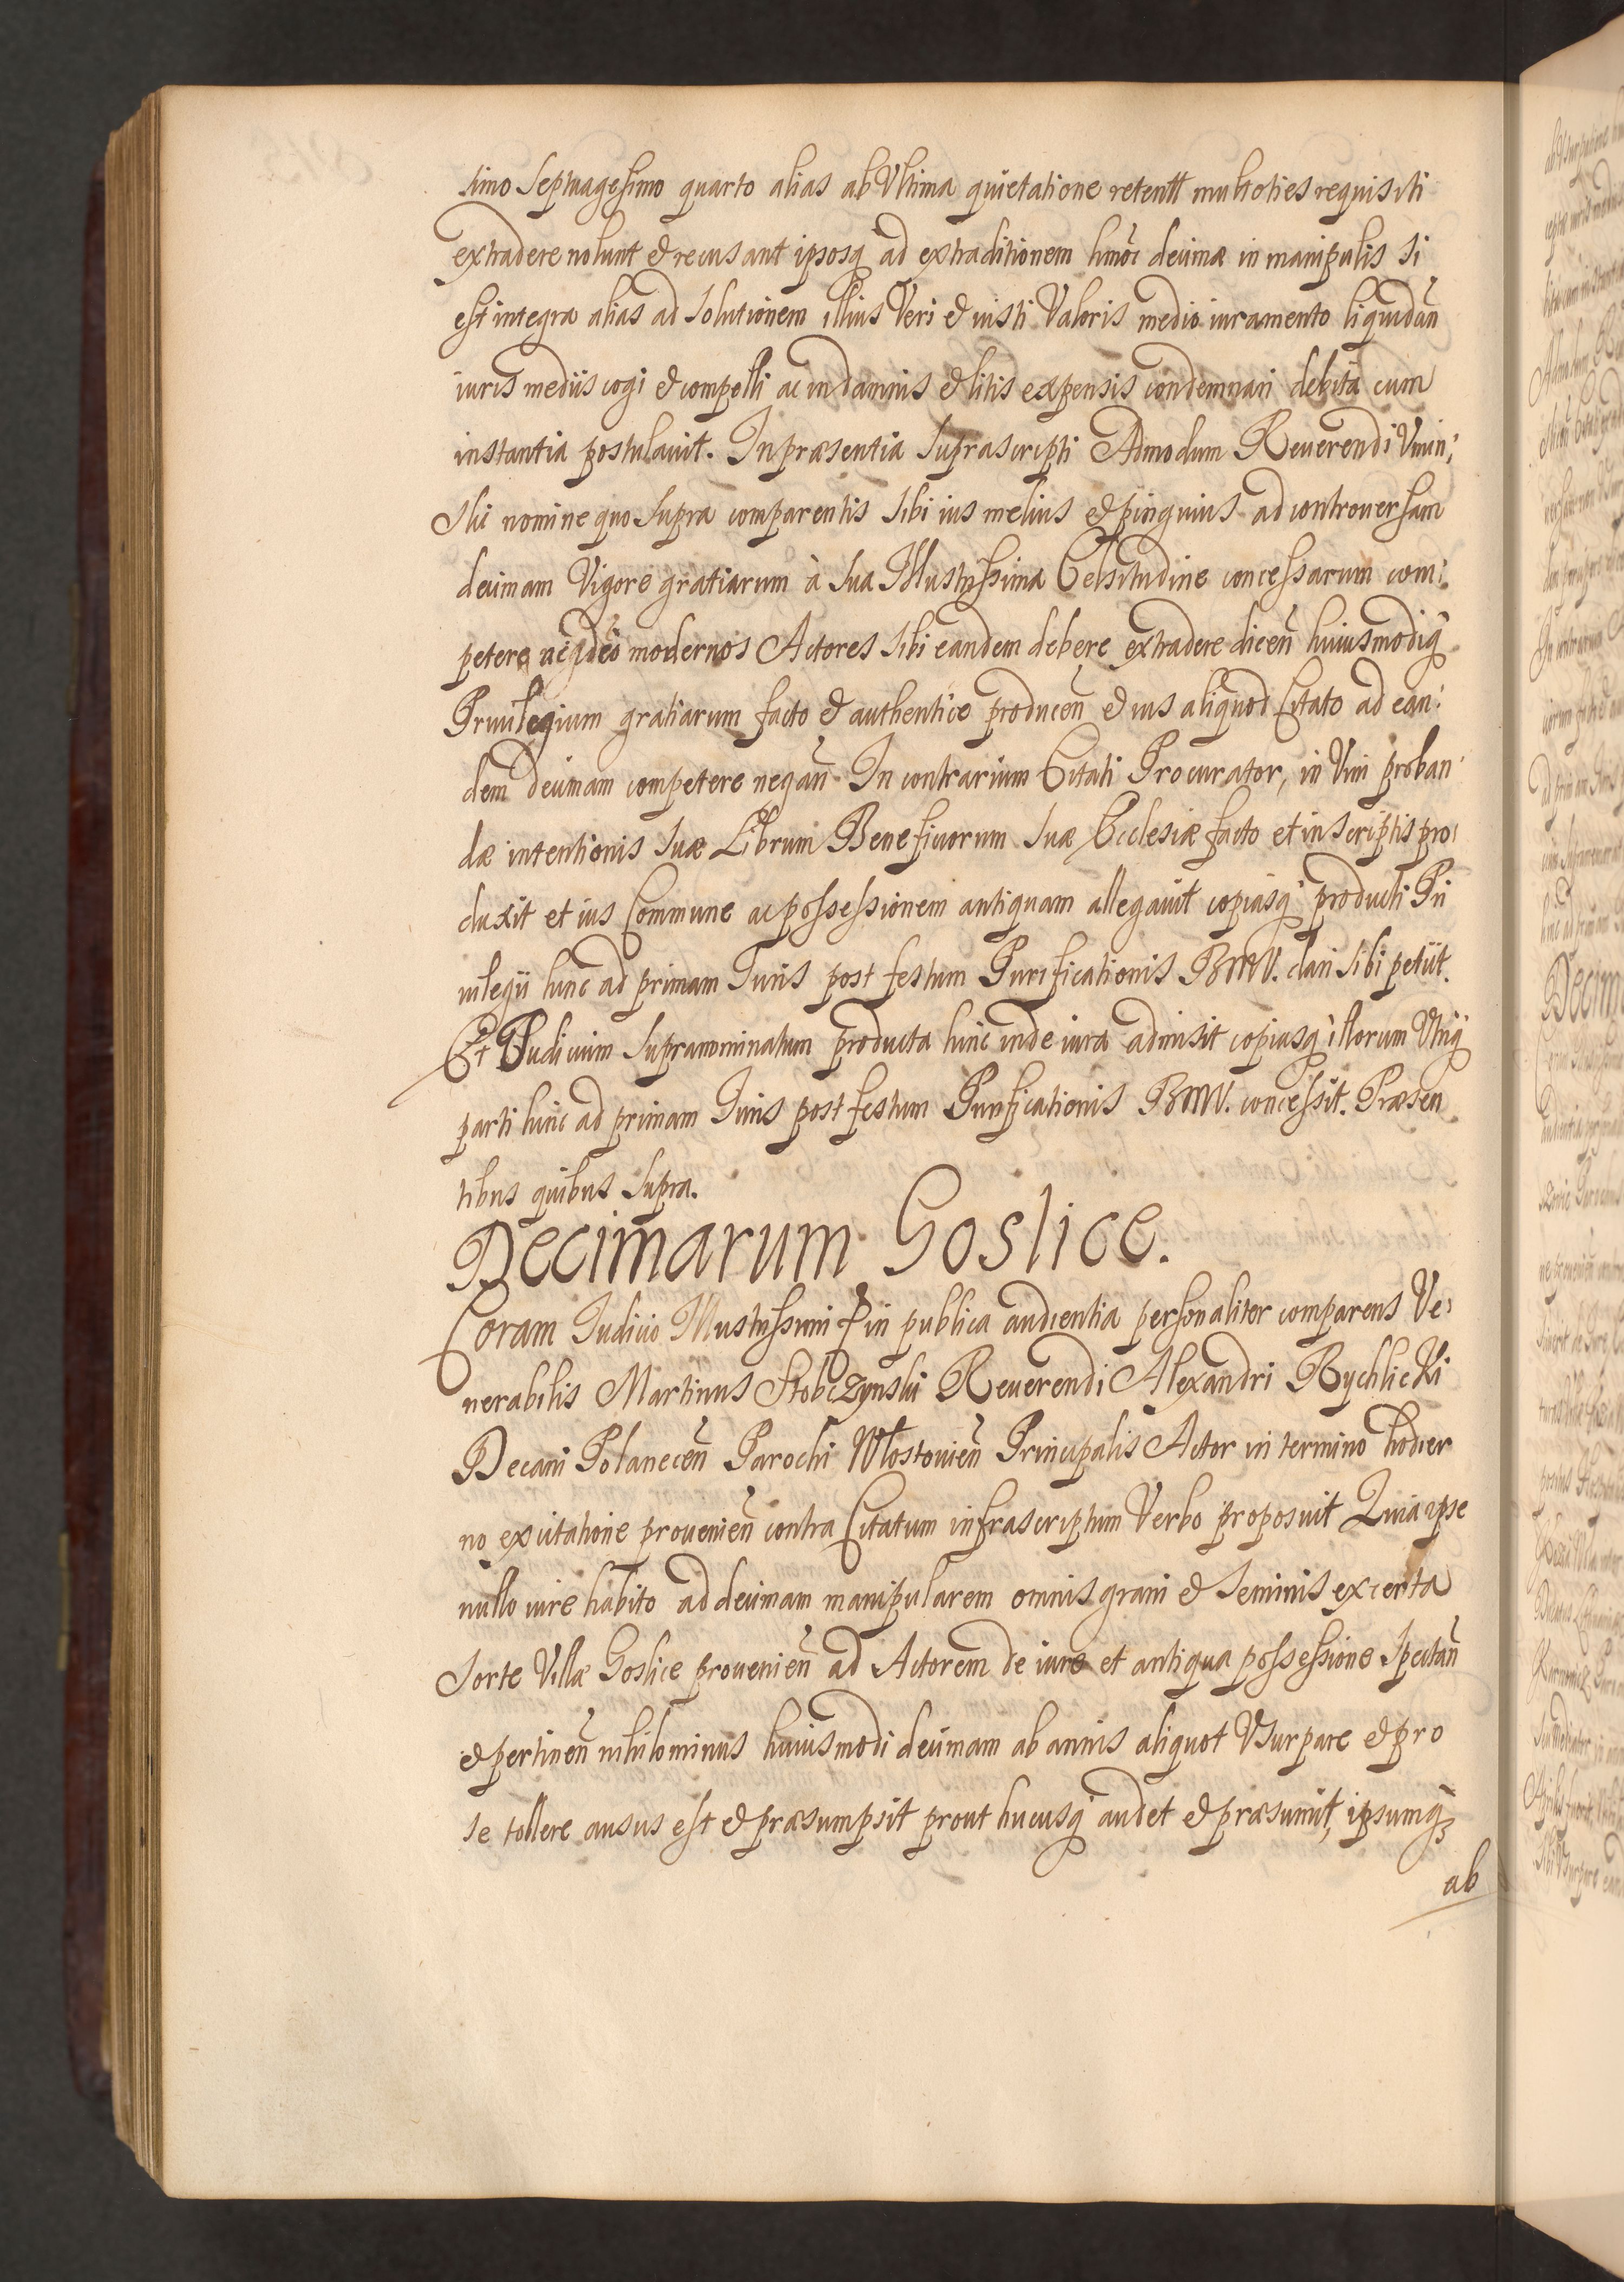 simo Septuagesimo quarto alias ab Vltima quietatione retentt multoties requisiti
extradere nolunt et recusant ipsosq ad extraditionem hmoi decimæ in manipulis si
est integra alias ad solutionem illius Veri et iusti Valoris medio iuramento liquidan
iuris mediis cogi et compelli ac in damnis et litis expensis condemnari debita cum
instantia postulauit. In præsentia Suprascripti Admodum Reuerendi Vnin:
Ski nomine quo Supra comparentis Sibi ius melius et pinguius ad controuersam
decimam Vigore gratiarum à Sua Illustrissima Celsitudine concessarum com:
petere acideo modernos Actores Sibi eandem debere extradere dicen huiusmodiq
Priuilegium gratiarum facto et authentice producen et ius aliquod Citato ad ean:
dem decimam competere negan. In contrarium Citati Procurator, in Vim proban
dæ intentionis Suæ Librum Beneficiorum Suæ Ecclesiæ facto et in Scriptis pro:
duxit et ius Commune ac possessionem antiquam allegauit copiasq producti Pri
uilegii hinc ad primam Iuris post festum Purificationis BMV. dari Sibi petiit.
Et Iudicium Supranominatum producta hinc inde iura admisit copiasq illorum Vtriq
parti hinc ad primam Iuris post festum Purificationis BMV. concessit. Præsen
tibus quibus Supra.
Decimarum Goslice.
Coram Iudicio Illustrissimi P in publica audientia personaliter comparens Ve:
nerabilis Martinus Stobczynski Reuerendi Alexandri Rychlicki
Decani Polanecen Parochi Włostouien Principalis Actor in termino hodier
no ex citatione prouenien contra Citatum infrascriptum Verbo proposuit Quia ipse
nullo iure habito ad decimam manipularem omnis grani et Seminis ex certa
Sorte Villæ Goslice prouenien ad Actorem de iure et antiqua possessione Spectan
et pertinen nihilominus huiusmodi decimam ab annis aliquot Vsurpare et pro
se tollere ausus est et præsumpsit prout hucusq audet et præsumit, ipsumq
ab